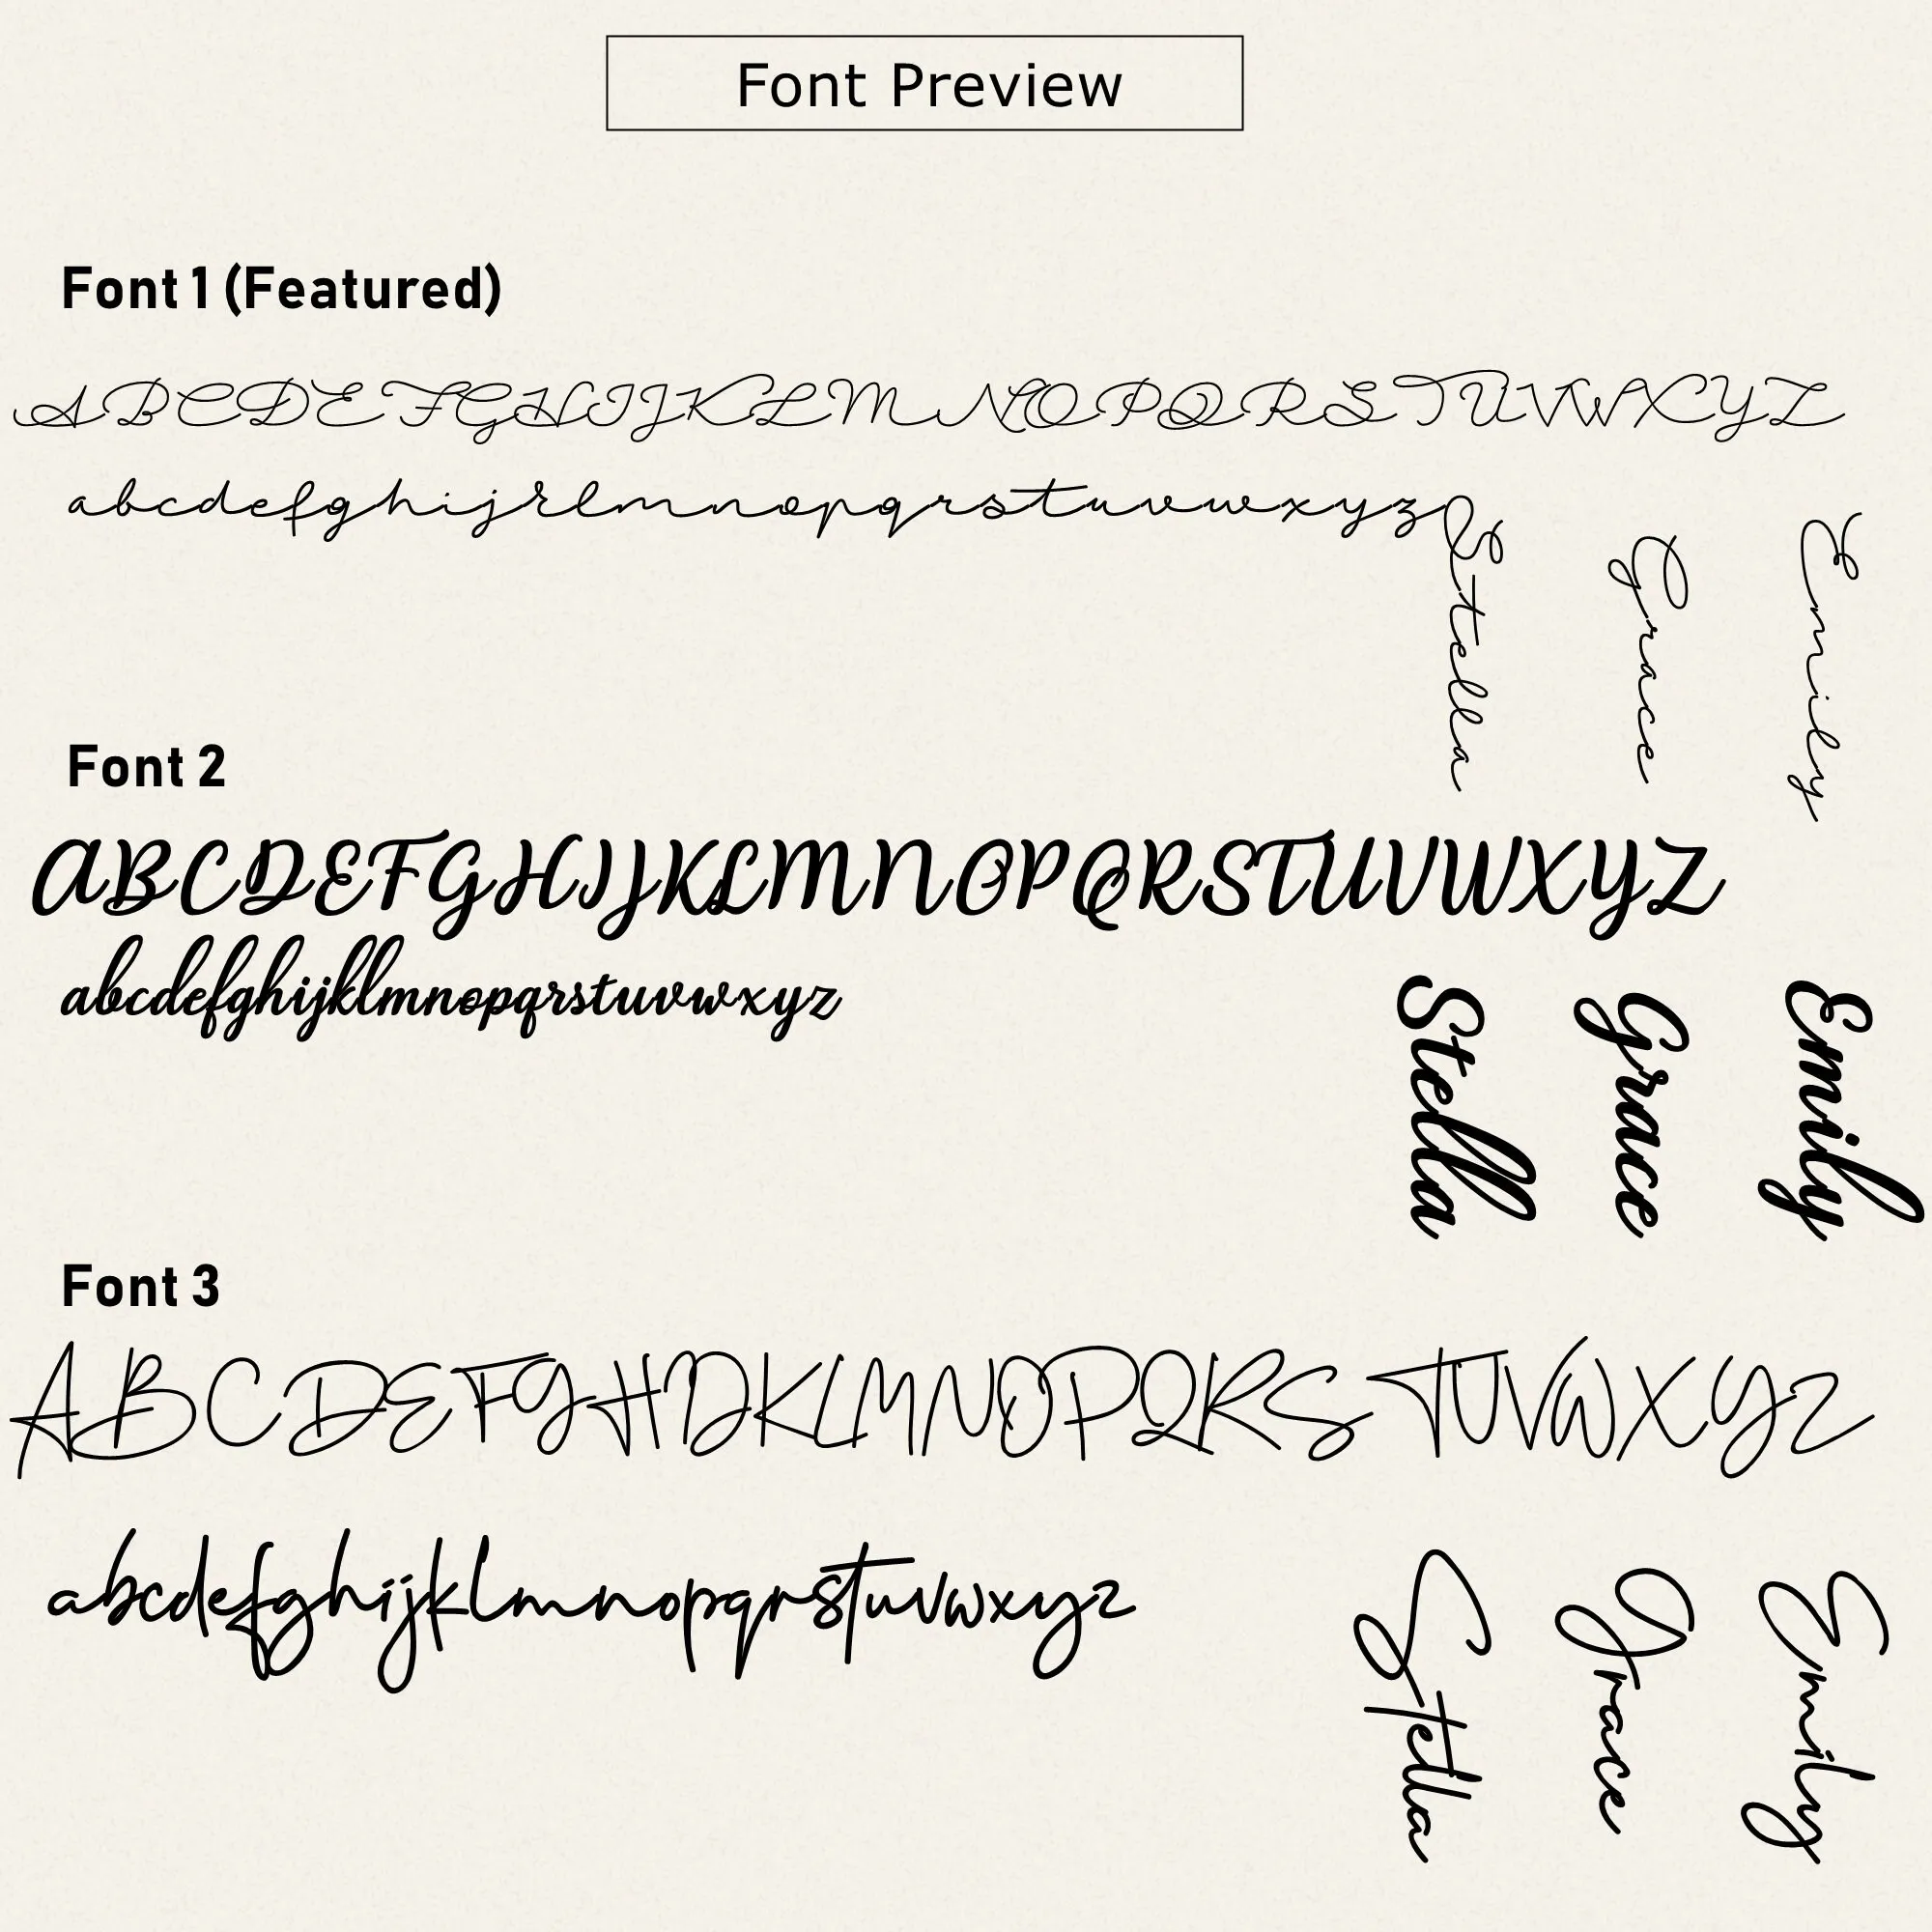 Font Preview
Font 1 (Featured)
ABCDEFGHIJKLMNOPQRSTUVWXYZ
abcdefghijklmnopqrstuvwxyz
Stella
Grace
Emily
Font 2
ABCDEFGHIJKLMNOPQRSTUVWXYZ
abcdefghijklmnopqrstuvwxyz
Stella
Grace
Emily
Font 3
ABCDEFGHIJKLMNOPQRSTUVWXYZ
abcdefghijklmnopqrstuvwxyz
Stella
Grace
Emily